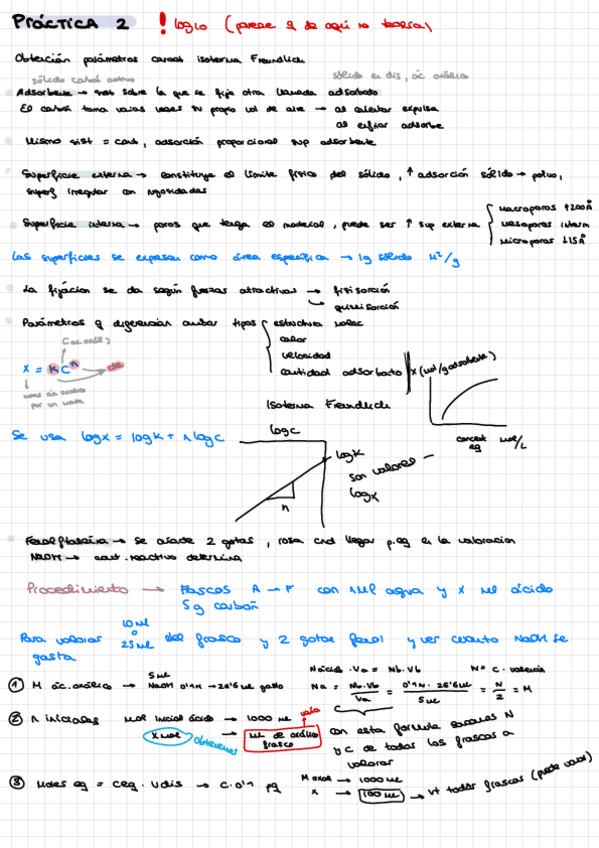 PRÁCTICA 2 ! log10 (parece q de aquí no teoría)
Obtención parámetros caract isoterma Freundlich
sólido carbón activo
sólido en dis, ác oxálico
Adsorbente → sust sobre la que se fija otra llamada adsorbato
El carbón toma varias veces su propio vol de aire → al calentar expulsa
al enfriar adsorbe
Mismo sist = cant, adsorción proporcional sup adsorbente
Superficie externa → constituye el límite físico del sólido, ↑ adsorción sólido → polvo,
superf irregular con rugosidades
Superficie interna → poros que tenga el material, puede ser ↑ sup externa
macroporos ↑200Å
mesoporos interm
microporos ↓15Å
Las superficies se expresan como área específica → 1g sólido M²/g
La fijación se da según fuerzas atractivas → fisisorción
quimisorción
Parámetros q diferencian ambos tipos
estructura molec
calor
velocidad
cantidad adsorbato
x = k Cⁿ → cte
moles ác oxálico
por un
x (mol/g adsorbente)
concent mol/L
eq
Isoterma Freundlich
Se usa log x = log k + n log c
log C
log K
n
son valores -
log x
Fenolftaleína → se añade 2 gotas, rosa cnd llegar p.eq en la valoración
NaOH → cant. reactivo determina
Procedimiento → Frascos A → F con x ml agua y x ml ácido
5g carbón
Para valorar 10 ml o 25 ml del frasco y 2 gotas fenol y ver cuanto NaOH se
gasta
① M ác. oxálico → 5 ml
NaOH 0'1M → 26'6 ml gasto
Nácid · Va = Nb · Vb N = C · valencia
Na = Nb·Vb / Va = 0'1N · 26'6 ml / 5 ml = N / 2 = M
② n iniciales mol inicial ácido → 1000 ml
varía
x mol → ml de oxálico
frasco
obtenemos
con esta fórmula sacamos N
y C de todos los frascos a
valorar
③ Moles eq = Ceq · Vdis → C · 0'1 pq
M oxal → 1000 ml
x → 100 ml → Vt todos frascos (puede variar)